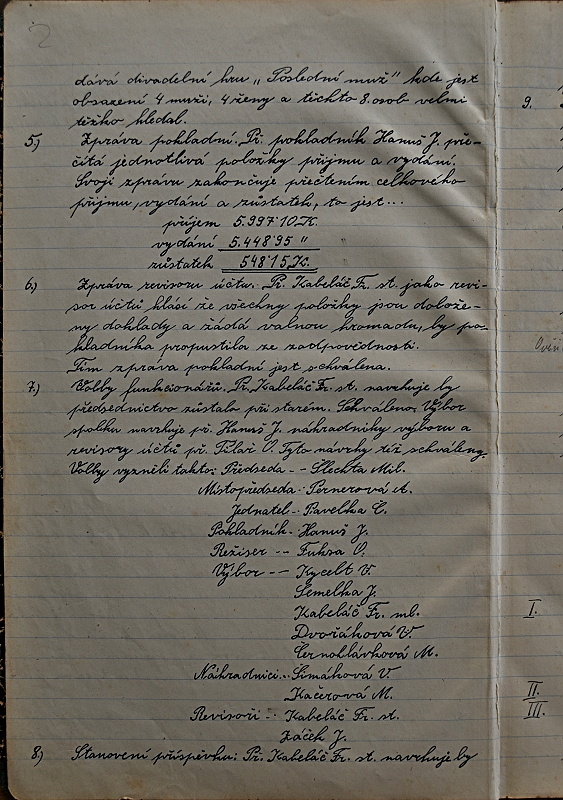 2
dává divadelní hru „Poslední muž" kde jest
obsazení 4 muži, 4 ženy a těchto 8. osob velmi
těžko hledal.
5.) Zpráva pokladní. Př. pokladník Hanuš J. pře-
čítá jednotlivá položky příjmu a vydání.
Svoji zprávu zakončuje přečtením celkového
příjmu, vydání a zůstatek, to jest...
příjem 5.997·10 K.
vydání 5.448·95 "
zůstatek 548·15 K.
6.) Zpráva revisoru účtu. Př. Kabeláč Fr. st. jako revi-
sor účtů hlásí že všechny položky jsou dolože-
ny doklady a žádá valnou hromadu, by po-
kladníka propustila ze zodpovědnosti.
Tím zpráva pokladní jest schválena.
7.) Volby funkcionářů. Př. Kabeláč Fr. st. navrhuje by
předsednictvo zůstalo při starém. Schváleno. Výbor
spolku navrhuje př. Hanuš J. náhradníky výboru a
revisory účtů př. Pilař O. Tyto návrhy též schváleny.
Volby vyzněli takto: Předseda -- Šlechta Mil.
Místopředseda - Pernerová A.
Jednatel - Pavelka Č.
Pokladník - Hanuš J.
Režiser -- Fuksa O.
Výbor -- Kycelt V.
Semelka J.
Kabeláč Fr. ml.
Dvořáková V.
Černohlávková M.
Náhradníci.. Šimáková V.
Kačerová M.
Revisoři - Kabeláč Fr. st.
Žáček J.
8.) Stanovení příspěvku: Př. Kabeláč Fr. st. navrhuje by
9.
I.
II.
III.